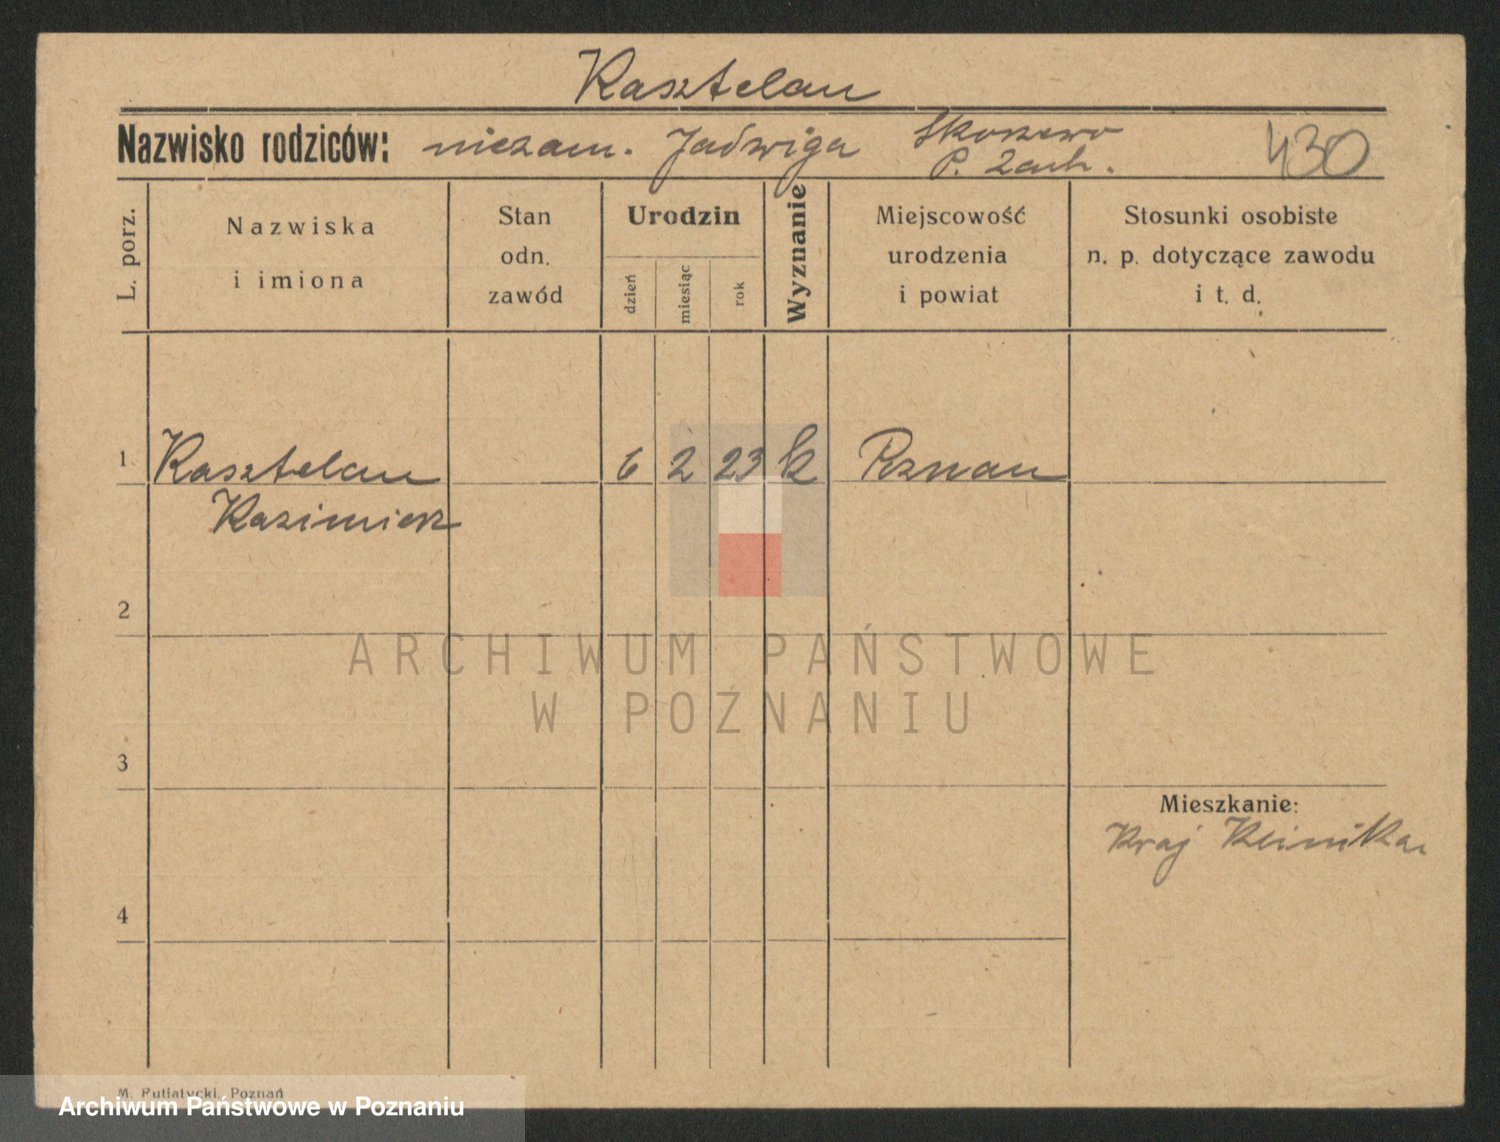 Kasztelan
Nazwisko rodziców: niezam. Jadwiga Skorzewo
P. Zach.
430
L. porz.
Nazwiska
i imiona
Stan
odn.
zawód
Urodzin
dzień
miesiąc
rok
Wyznanie
Miejscowość
urodzenia
i powiat
Stosunki osobiste
n. p. dotyczące zawodu
i t. d.
1 Kasztelan 6 2 23 k Poznan
Kazimierz
2
ARCHIWUM PAŃSTWOWE
W POZNANIU
3
Mieszkanie:
Kraj Klinika
4
M. Putiatycki, Poznań
Archiwum Państwowe w Poznaniu